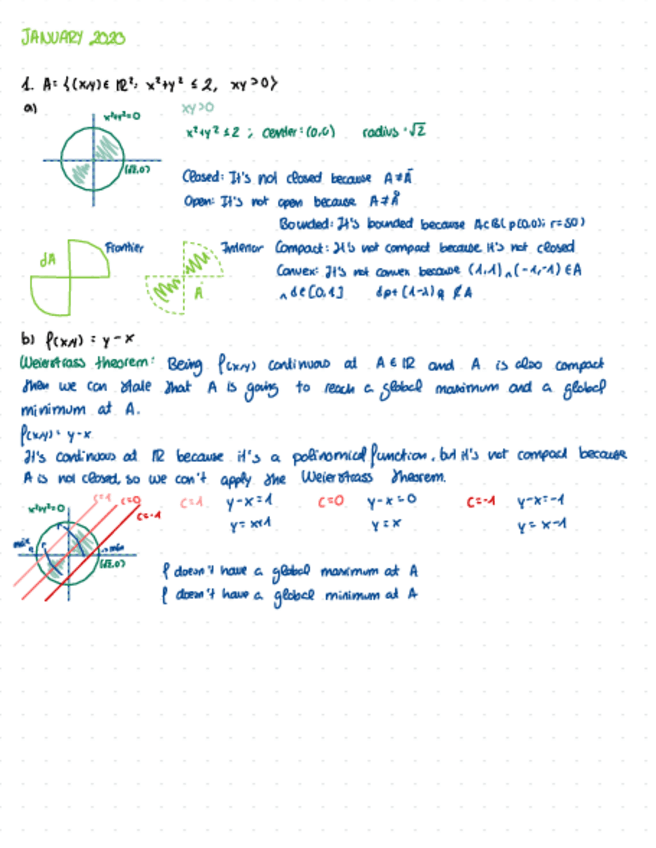 JANUARY 2020
1. A = {(x,y) ∈ IR²: x²+y² ≤ 2, xy > 0}
a)
x²+y²=0
(√2,0)
xy>0
x²+y² ≤ 2 ; center: (0,0) radius = √2
Closed: It's not closed because A ≠ Ā
Open: It's not open because A ≠ Å
Bounded: It's bounded because A ⊂ B( p(0,0); r=50)
dA Frontier
Interior A
Compact: It's not compact because it's not closed
Convex: It's not convex because (1,1) ∧ (-1,-1) ∈ A
∧ d ∈ [0,1] dp + (1-λ)q ∉ A
b) f(x,y) = y-x
Weierstrass theorem: Being f(x,y) continuous at A ∈ IR and A is also compact
then we can state that A is going to reach a global maximum and a global
minimum at A.
f(x,y) = y-x
It's continuous at IR because it's a polinomical function, but it's not compact because
A is not closed, so we can't apply the Weierstrass theorem.
x²+y²=0
c=1 c=0 c=-1
(√2,0)
c=1 y-x=1 c=0 y-x=0 c=-1 y-x=-1
y=x+1 y=x y=x-1
f doesn't have a global maximum at A
f doesn't have a global minimum at A